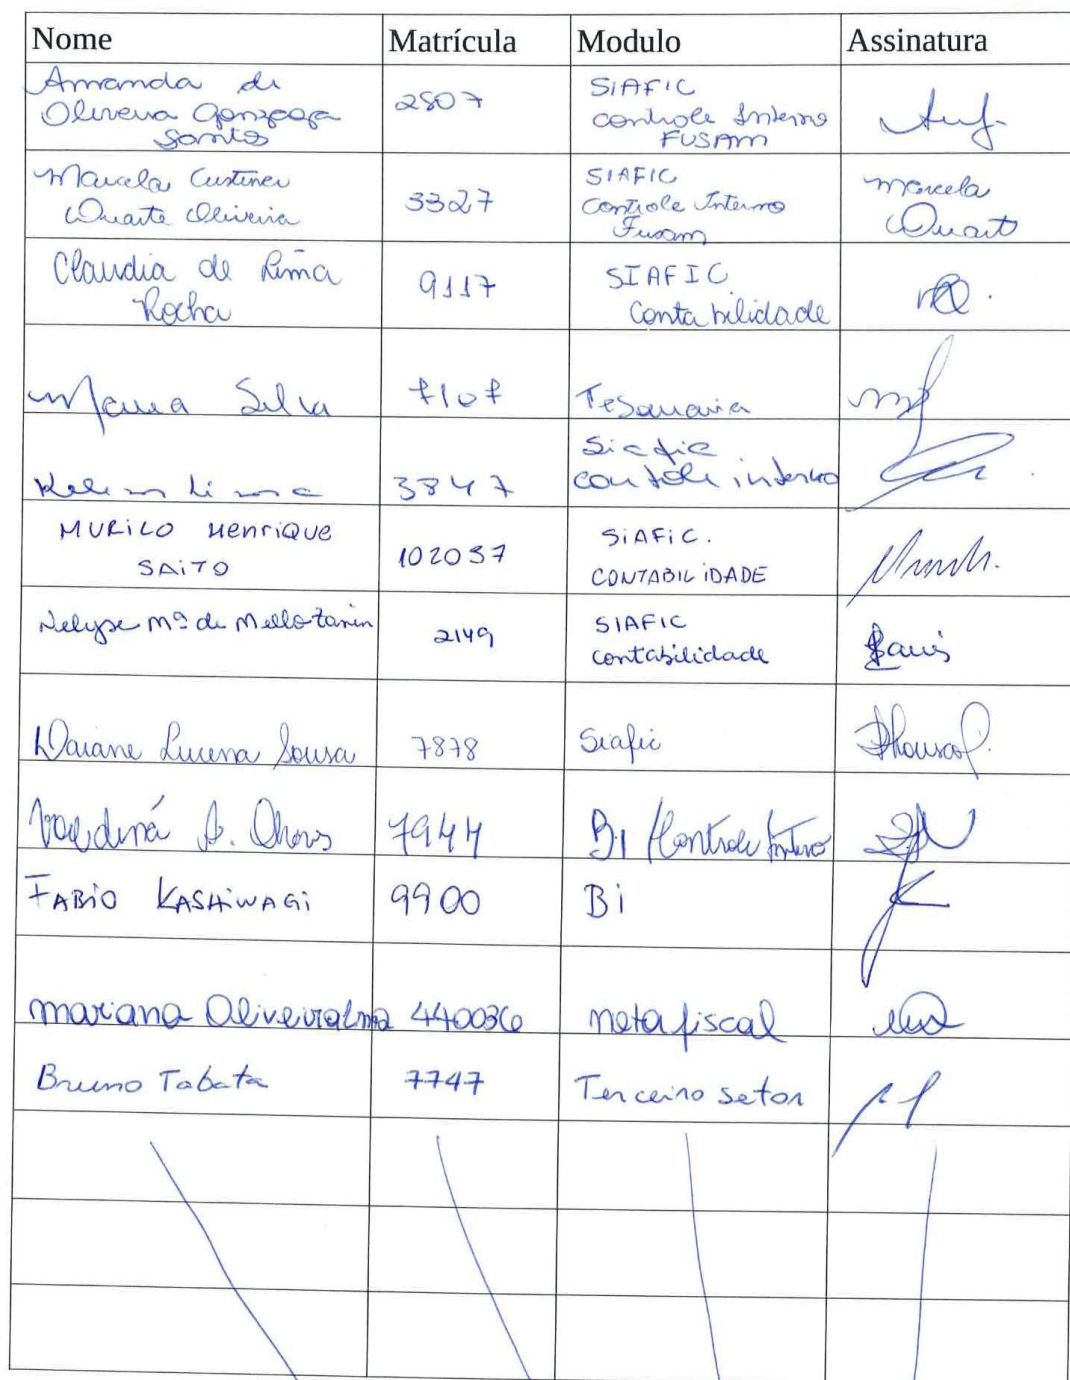 Nome Matrícula Modulo Assinatura
Amanda de Oliveira Gonzaga Santos 2507 SIAFIC controle Interno FUSAM
Marcela Custiner Duarte Oliveira 3327 SIAFIC Controle Interno Fusam Marcela Duart
Claudia de Lima Rocha 9117 SIAFIC Contabilidade
Silva 7107 Tesouraria
Lima 3847 Siafic controle interno
MURILO Henrique SAITO 102037 SIAFIC. CONTABILIDADE
Nelyse Mª de Mello Zanin 2149 SIAFIC contabilidade
Daiane Lucena Sousa 7878 Siafic
Valdiná A. 7944 BI / Controle Interno
FABIO KASHIWAGI 9900 Bi
mariana Oliveira Lima 440036 nota fiscal
Bruno Tabata 7747 Terceiro setor